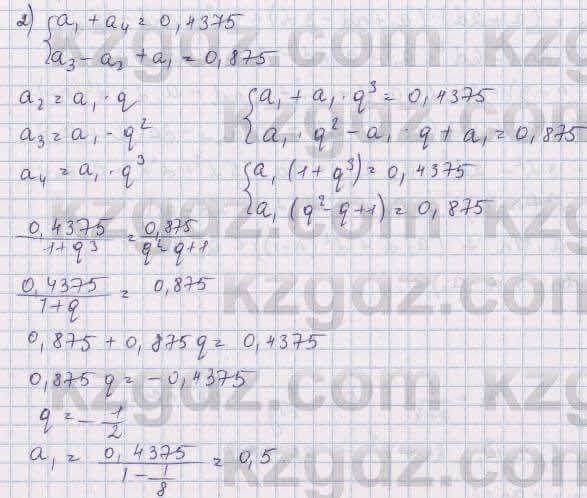 2) { a₁ + a₄ = 0,4375
a₃ - a₂ + a₁ = 0,875
a₂ = a₁ · q
a₃ = a₁ · q²
a₄ = a₁ · q³
{ a₁ + a₁ · q³ = 0,4375
a₁ · q² - a₁ · q + a₁ = 0,875
{ a₁ (1 + q³) = 0,4375
a₁ (q² - q + 1) = 0,875
0,4375 / 1 + q³ = 0,875 / q² - q + 1
0,4375 / 1 + q = 0,875
0,875 + 0,875 q = 0,4375
0,875 q = - 0,4375
q = - 1/2
a₁ = 0,4375 / 1 - 1/8 = 0,5
kzgdz.com
kzgdz.com
kzgdz.com
kzgdz.com